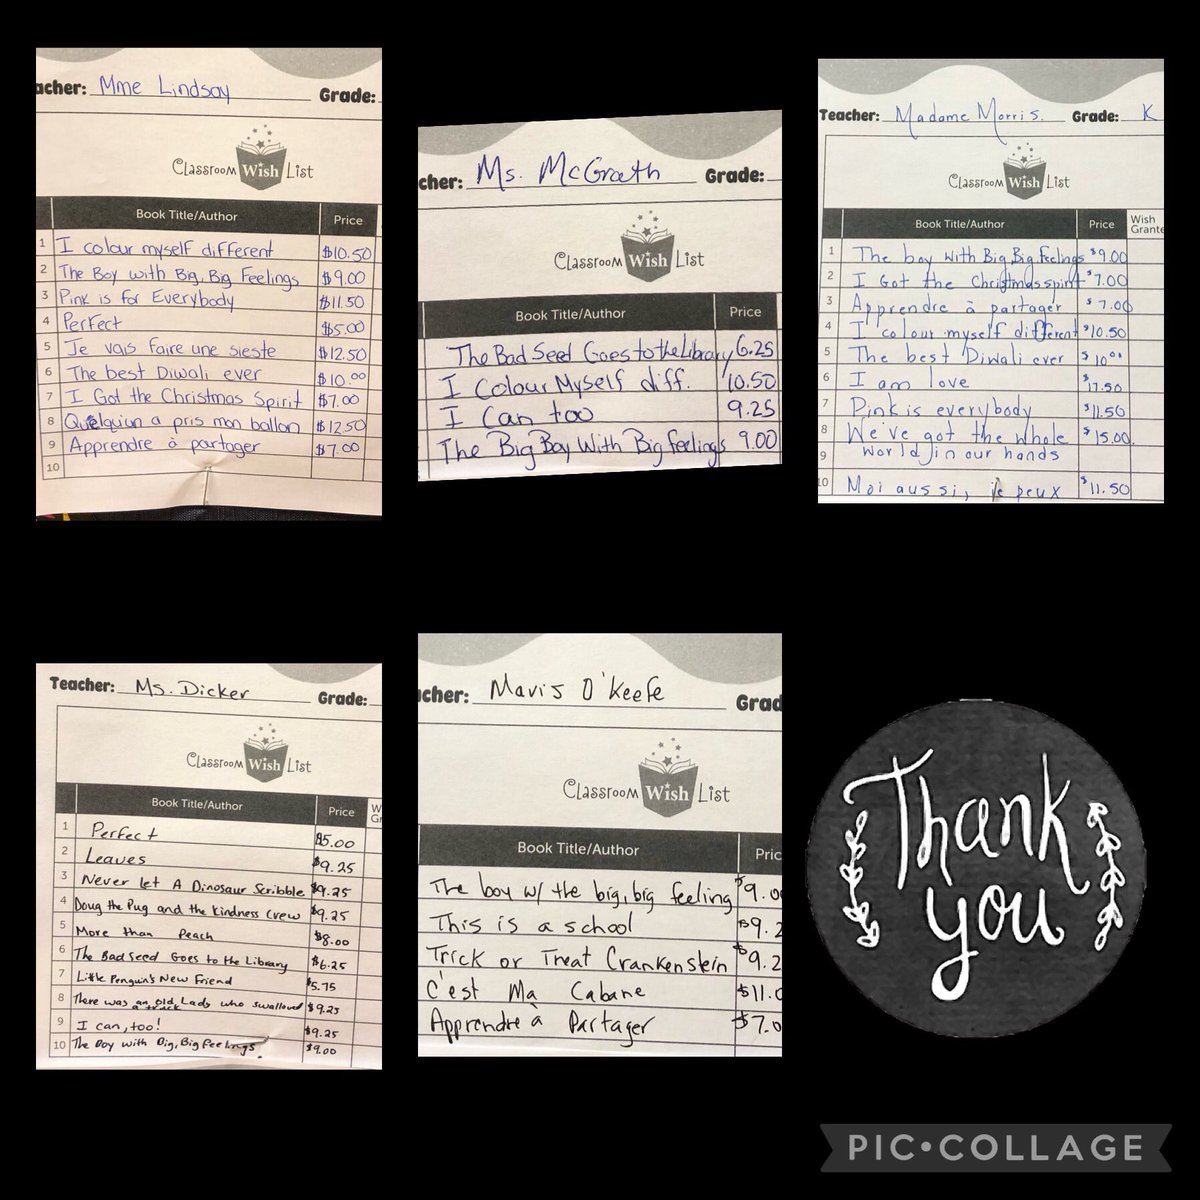 acher: Mme Lindsay Grade:
Classroom Wish List
Book Title/Author Price
1 I colour myself different $10.50
2 The Boy with Big, Big Feelings $9.00
3 Pink is for Everybody $11.50
4 Perfect $5.00
5 Je vais faire une sieste $12.50
6 The best Diwali ever $10.00
7 I Got the Christmas Spirit $7.00
8 Quelqu'un a pris mon ballon $12.50
9 Apprendre à partager $7.00
10
cher: Ms. McGrath Grade:
Classroom Wish List
Book Title/Author Price
The Bad Seed Goes to the Library 6.25
I Colour Myself diff. 10.50
I Can too 9.25
The Big Boy With Big feelings 9.00
Teacher: Madame Morris. Grade: K
Classroom Wish List
Book Title/Author Price Wish Grante
1 The boy with Big, Big Feelings $9.00
2 I Got the Christmas spirit $7.00
3 Apprendre à partager $7.00
4 I colour myself different $10.50
5 The best Diwali ever $10.00
6 I am love $17.50
7 Pink is everybody $11.50
8 We've got the whole $15.00
9 world in our hands
10 Moi aussi, je peux $11.50
Teacher: Ms. Dicker Grade:
Classroom Wish List
Book Title/Author Price W Gr
1 Perfect $5.00
2 Leaves $9.25
3 Never let A Dinosaur Scribble $9.25
4 Doug the Pug and the Kindness Crew $9.25
5 More than Peach $8.00
6 The Bad Seed Goes to the Library $6.25
7 Little Penguin's New Friend $5.75
8 There was an old Lady who swallowed $9.25
a truck
9 I can, too! $9.25
10 The Boy with Big, Big Feelings. $9.00
acher: Mavis O'Keefe Grad
Classroom Wish List
Book Title/Author Pric
The boy w/ the big, big feeling $9.00
This is a school $9.2
Trick or Treat Crankenstein $9.2
C'est Ma Cabane $11.0
Apprendre à Partager $7.0
Thank
you
PIC•COLLAGE